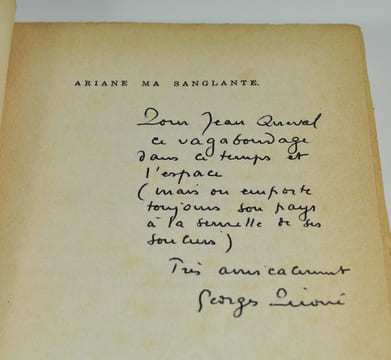 ARIANE MA SANGLANTE.
Pour Jean Queval
ce vagabondage
dans le temps et
l'espace
(mais on emporte
toujours son pays
à la semelle de ses
souliers)
Très amicalement
Georges